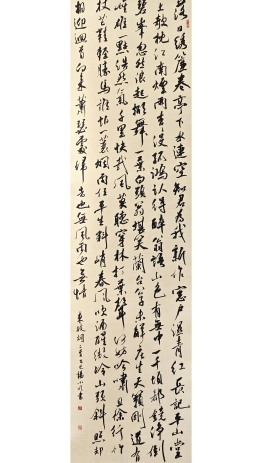 落日绣簾卷亭下水連空知君為我新作窗戶濕青紅長記平山堂
上欹枕江南煙雨杳杳没孤鴻認得醉翁語山色有無中一千頃都鏡淨倒
碧峰忽然浪起掀舞一葉白頭翁堪笑蘭台公子未解莊生天籟剛道有
雌雄一點浩然氣千里快哉風莫聽穿林打葉聲何妨吟嘯且徐行竹
杖芒鞋輕勝馬誰怕一蓑烟雨任平生料峭春風吹酒醒微冷山頭斜照却
相迎迴首向来蕭瑟處歸去也無風雨也無情
東坡詞二首